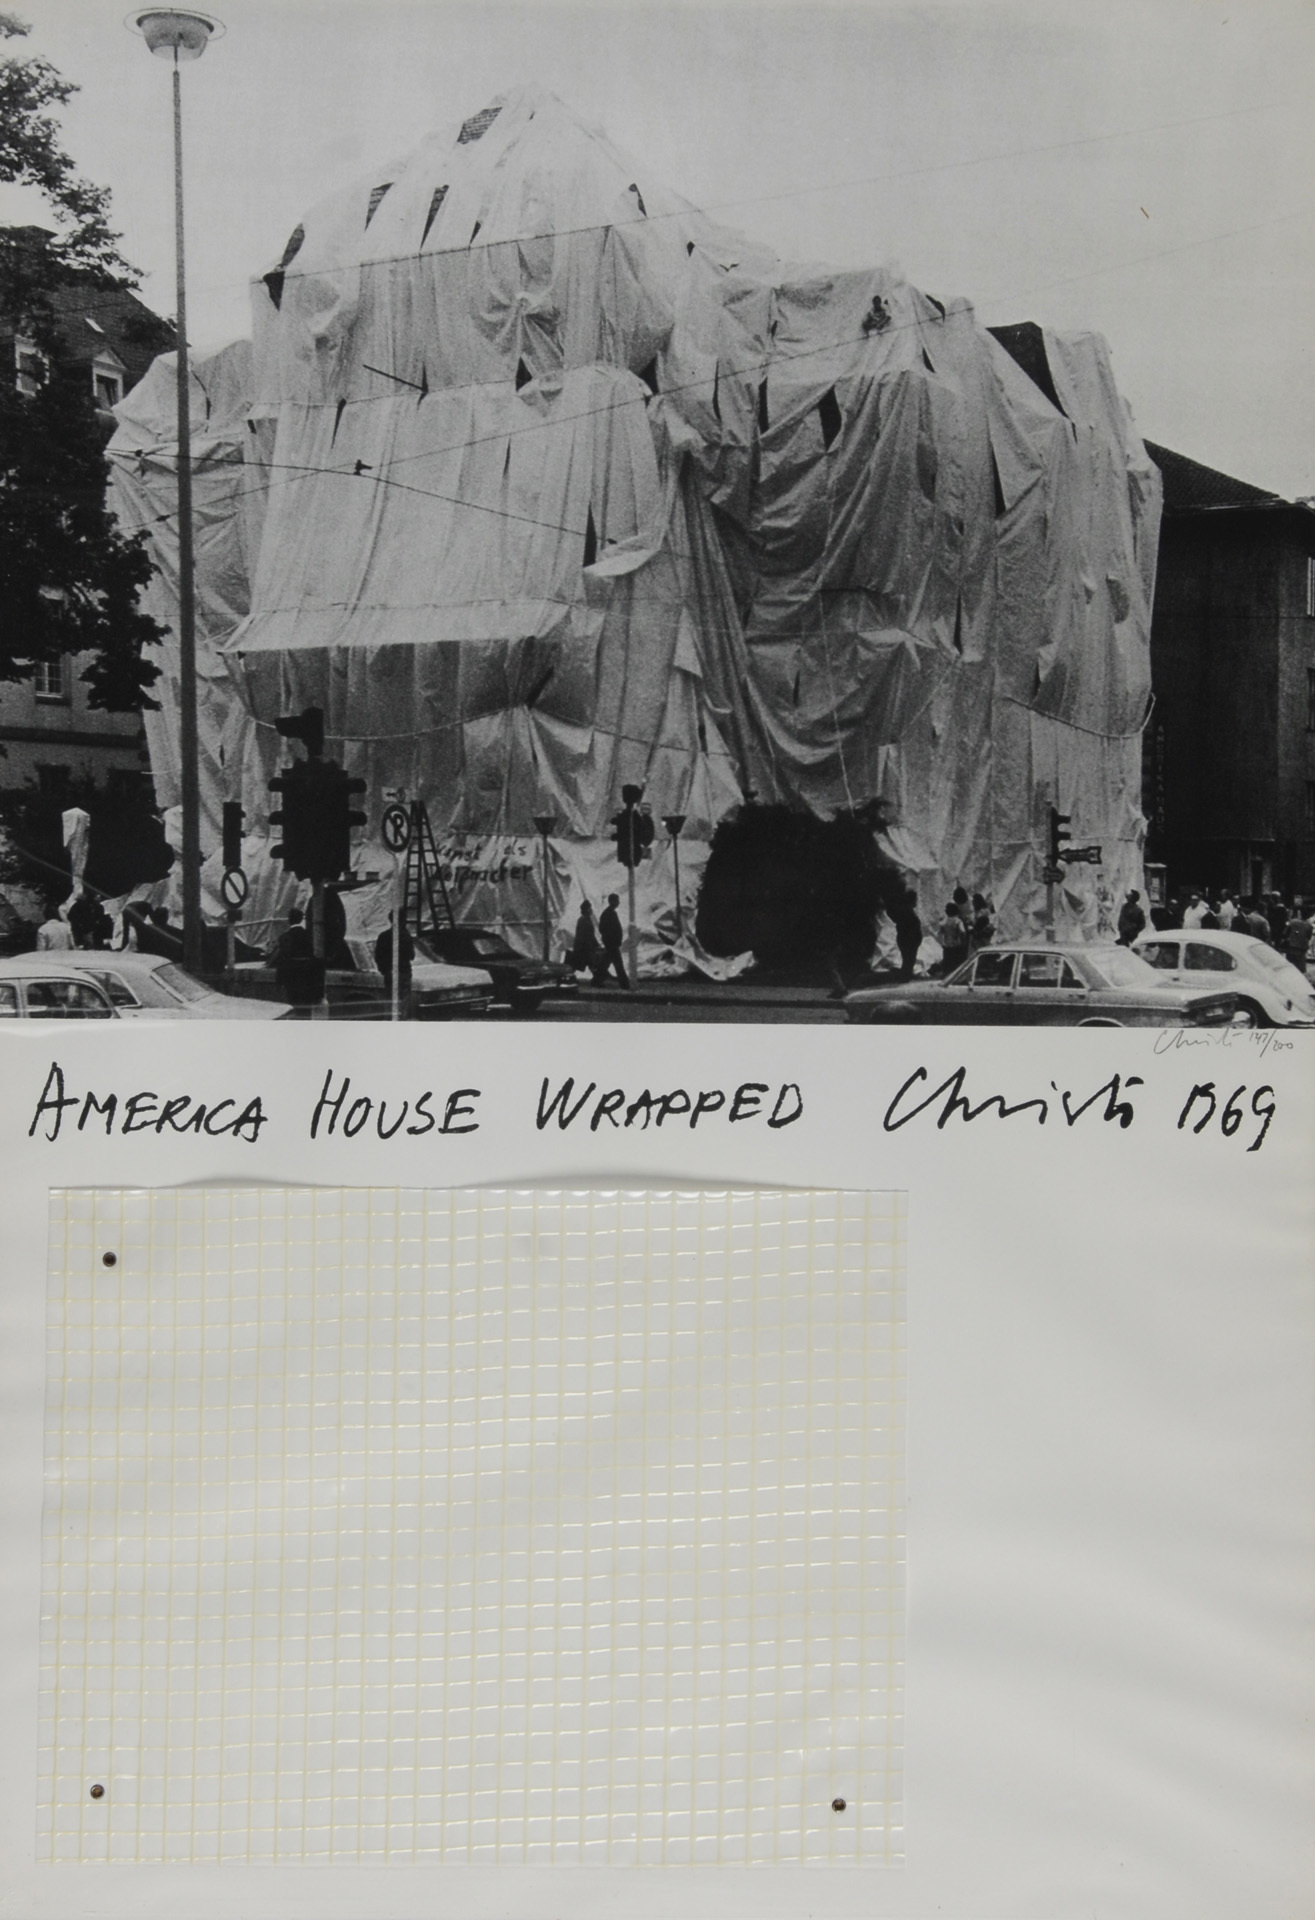 Kunst als
Christo 147/200
AMERICA HOUSE WRAPPED Christo 1969